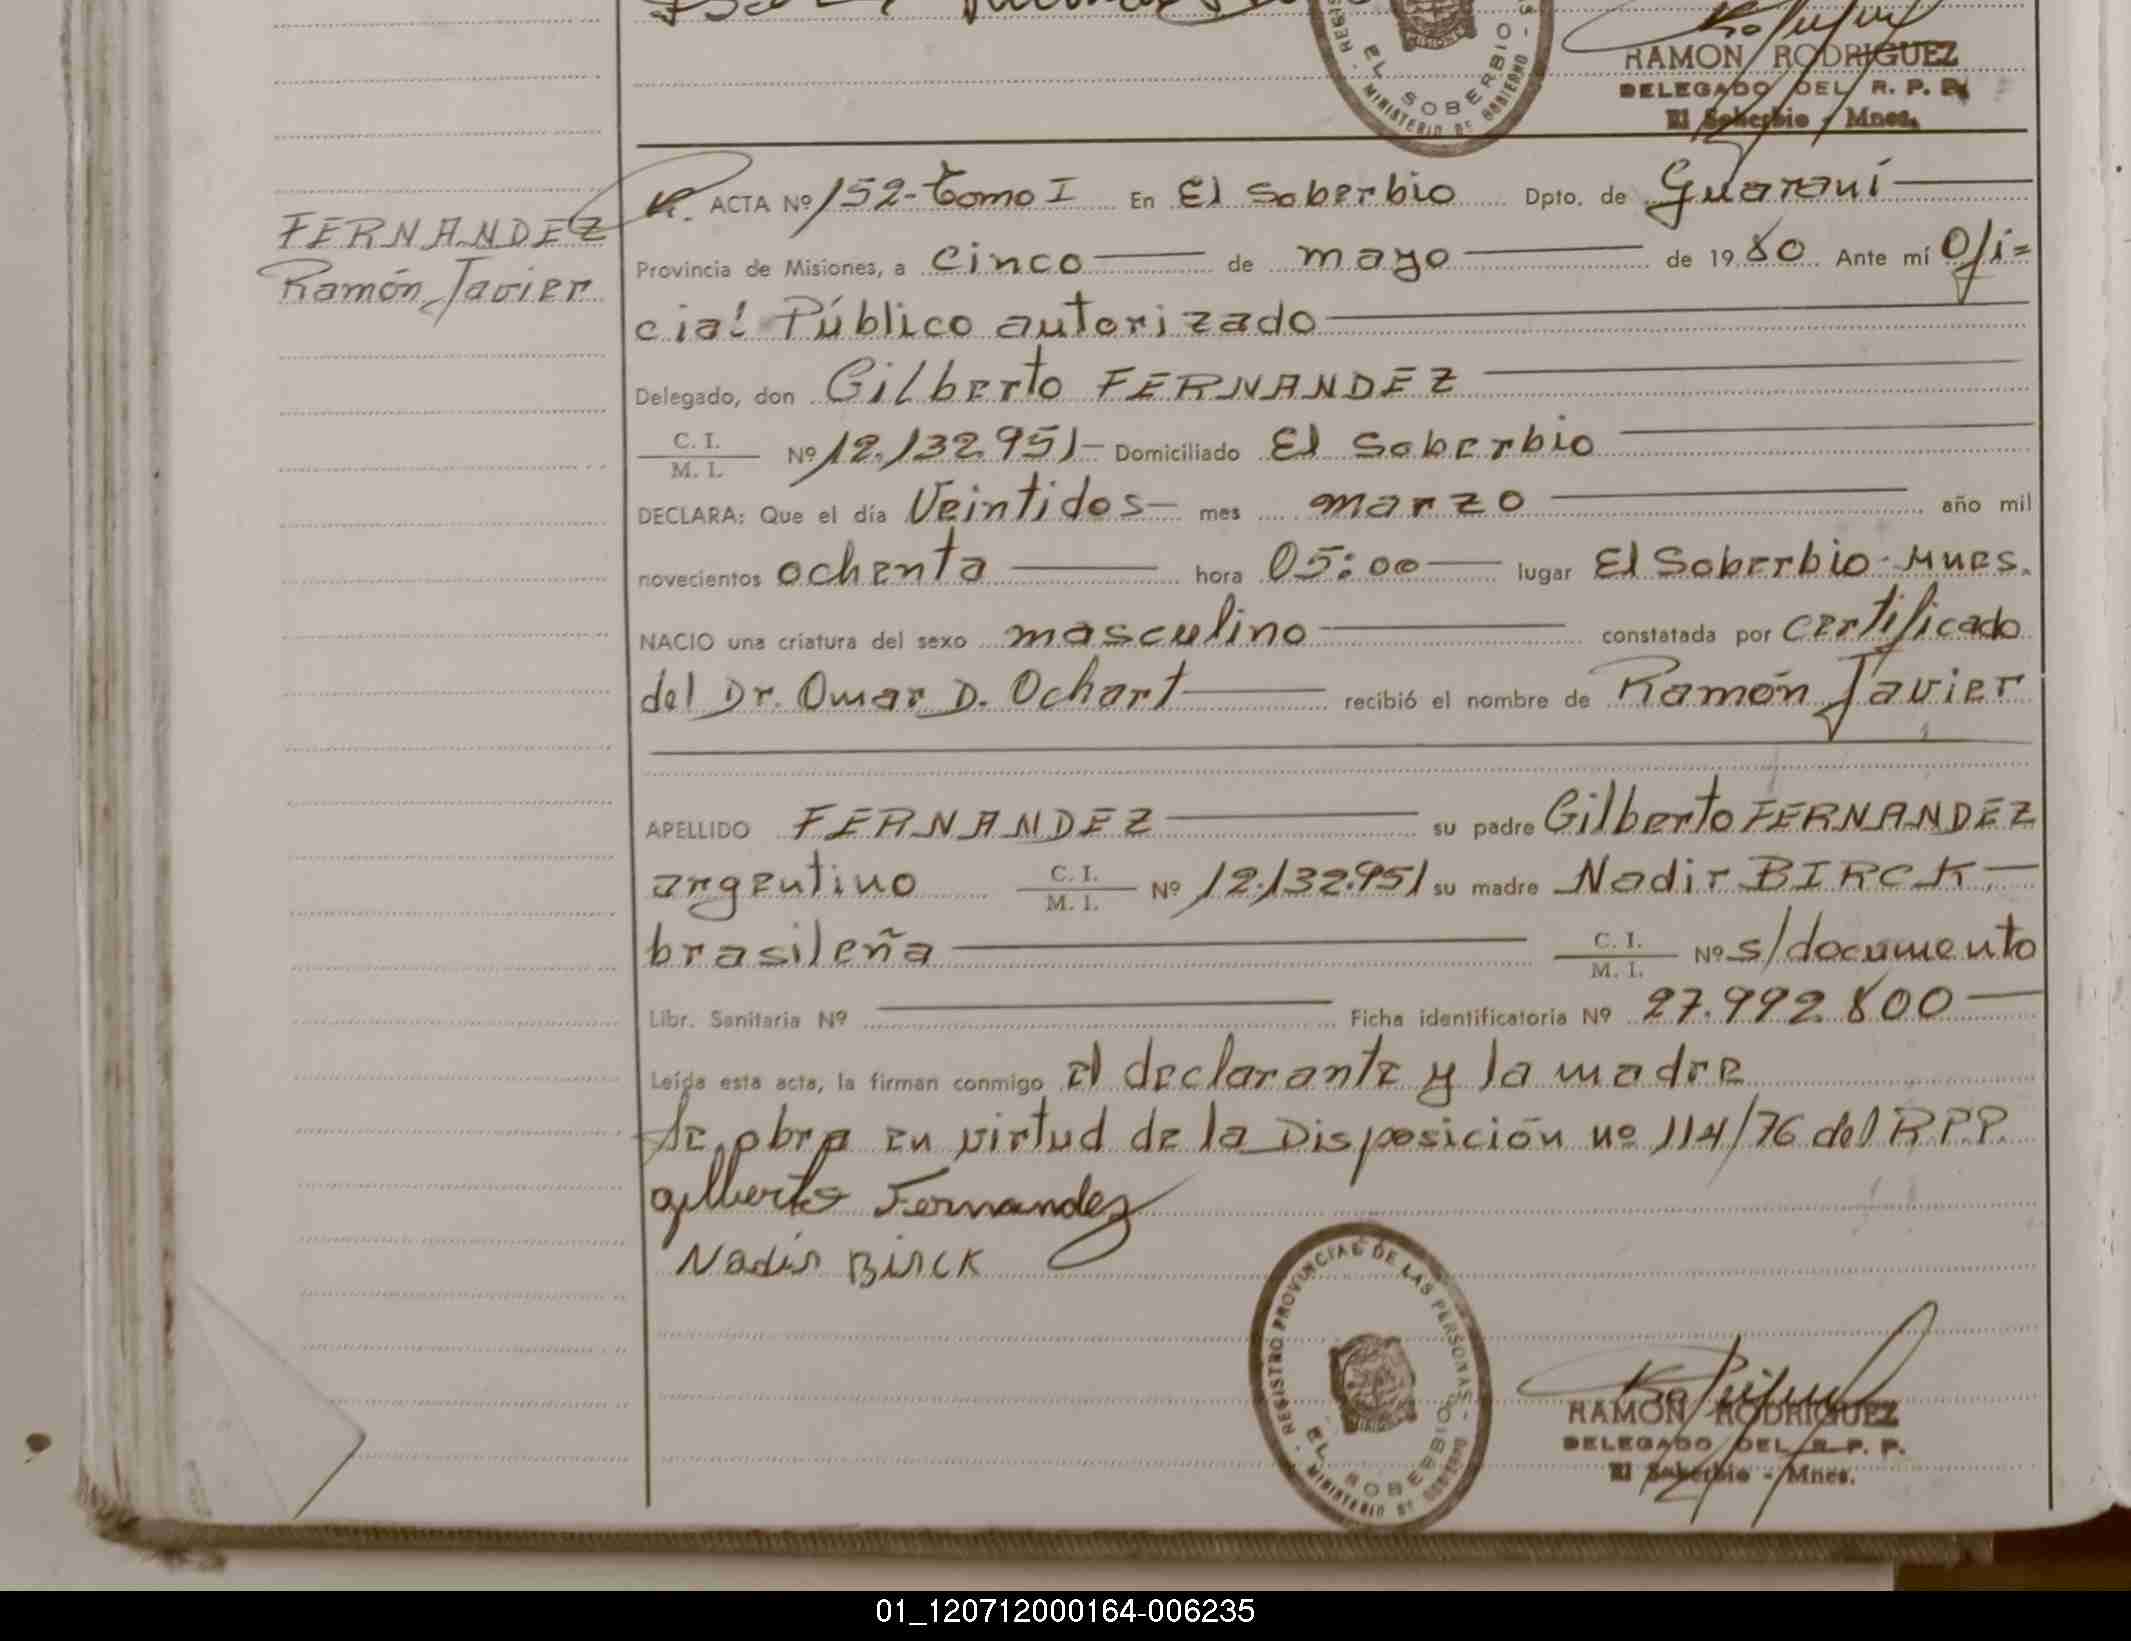 REGIS
EL SOBERBIO
MINISTERIO DE GOBIERNO
RAMON RODRIGUEZ
DELEGADO DEL R. P. P.
El Soberbio - Mnes.
FERNANDEZ
Ramón Javier
R. ACTA Nº 152-Tomo I En El Soberbio Dpto. de Guaraní
Provincia de Misiones, a cinco de mayo de 1980 Ante mí Ofi=
cial Público autorizado
Delegado, don Gilberto FERNANDEZ
C. I.
M. I. Nº 12.132951- Domiciliado El Soberbio
DECLARA: Que el día Veintidos mes marzo año mil
novecientos ochenta hora 05:00 lugar El Soberbio-Mnes.
NACIO una criatura del sexo masculino constatada por certificado
del Dr. Omar D. Ochart recibió el nombre de Ramón Javier
APELLIDO FERNANDEZ su padre Gilberto FERNANDEZ
argentino C. I.
M. I. Nº 12.132.951 su madre Nadir BIRCK
brasileña C. I.
M. I. Nº s/documento
Libr. Sanitaria Nº Ficha identificatoria Nº 27.992.800
Leída esta acta, la firman conmigo el declarante y la madre
Se obra en virtud de la Disposición nº 114/76 del RPP.
Gilberto Fernandez
Nadir Birck
REGISTRO PROVINCIAL DE LAS PERSONAS
EL SOBERBIO
MINISTERIO DE GOBIERNO
RAMON RODRIGUEZ
DELEGADO DEL R. P. P.
El Soberbio - Mnes.
01_120712000164-006235